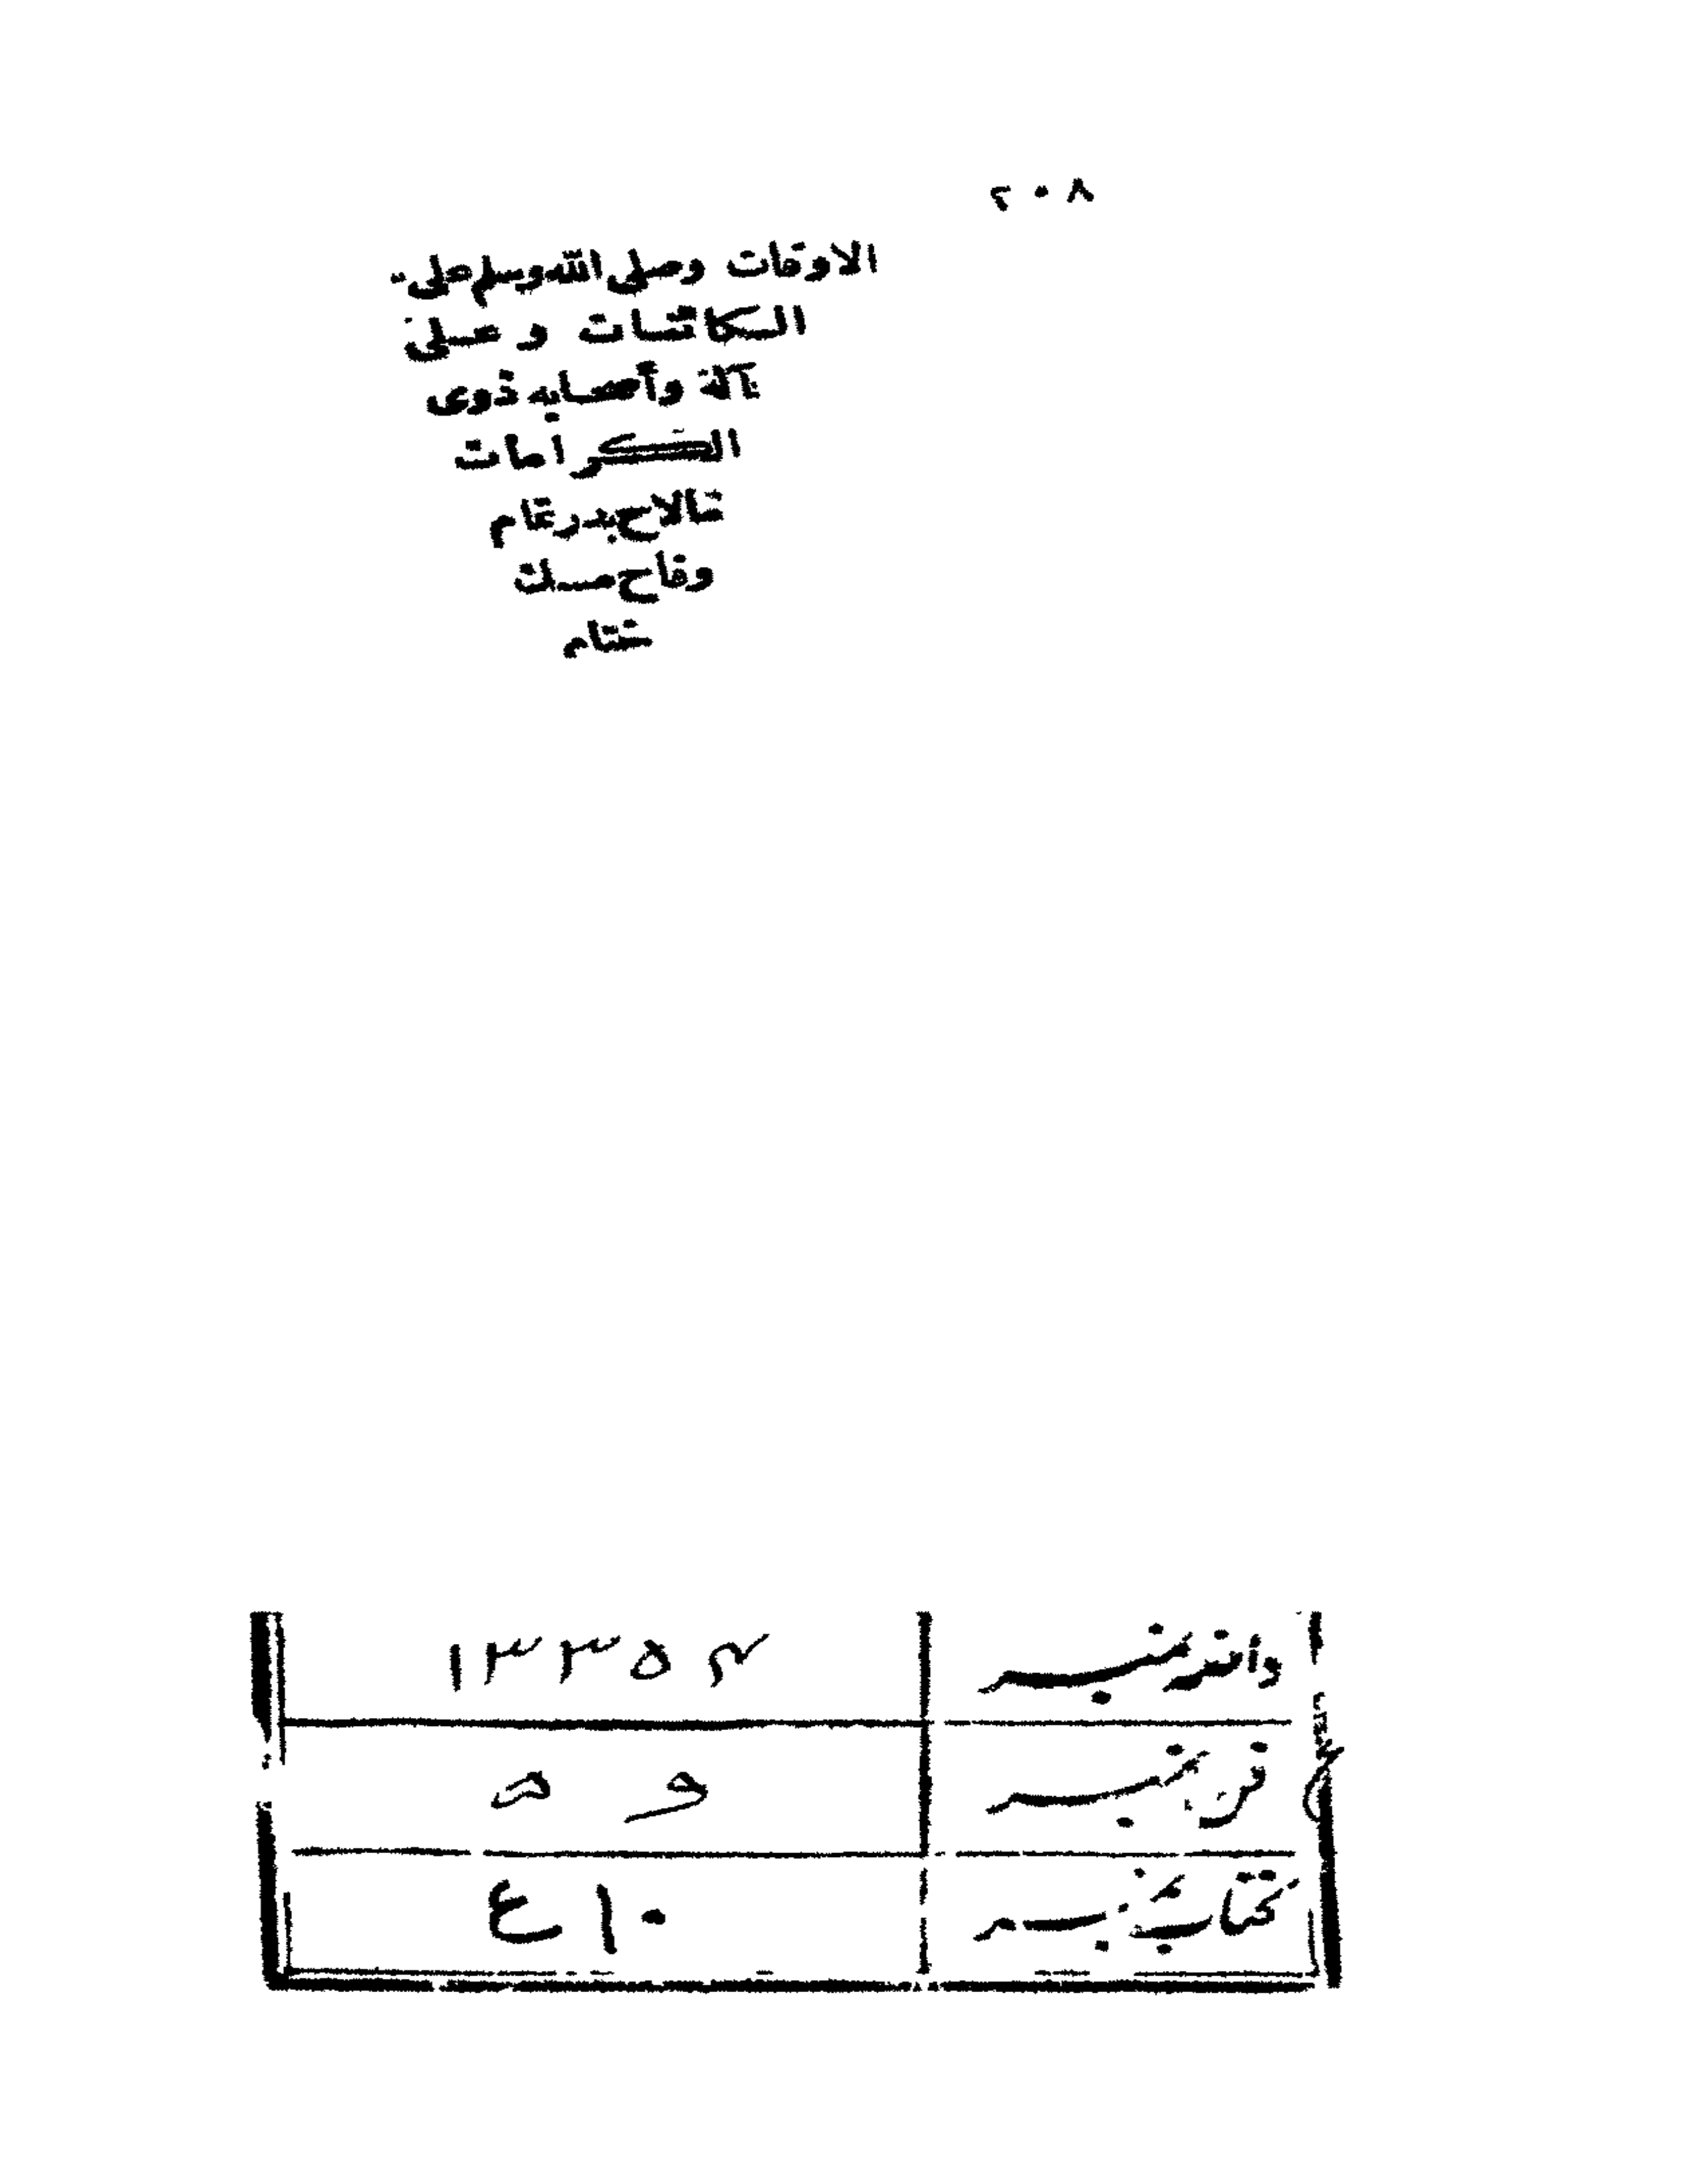 ٢٠٨
الاوقات وصلى الله وسلم على
الكائنات وعلى
آله وأصحابه ذوى
الكرامات
مالاح بدر تمام
وفاح مسك
ختام
١٣٣٥٤
فن نمبر
كتاب نمبر ١٠ ع